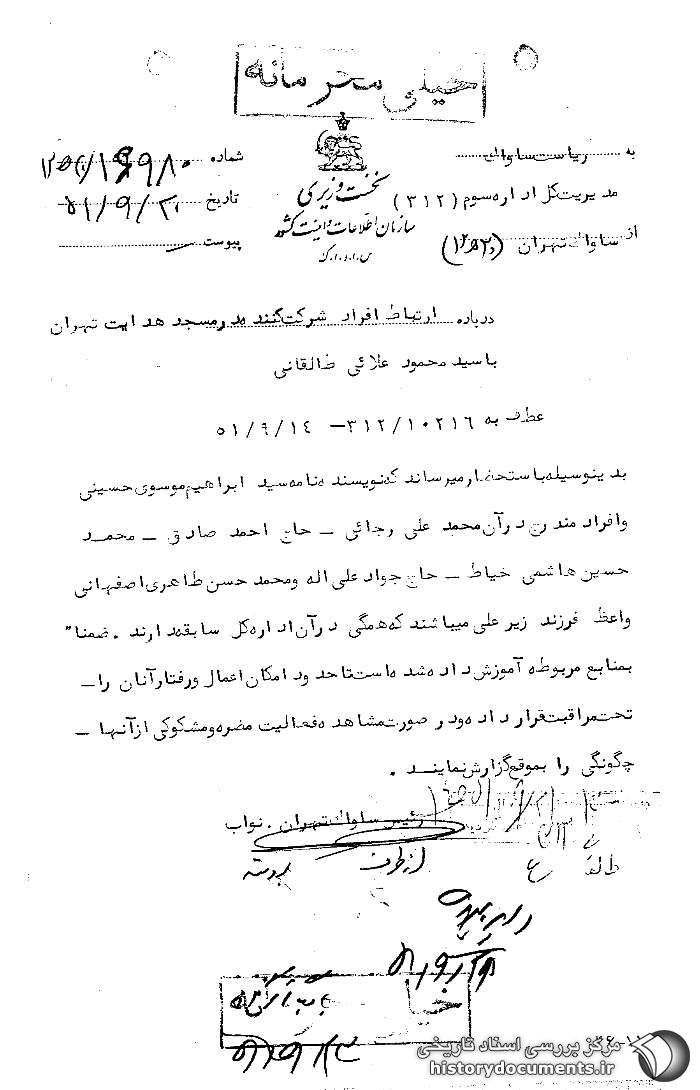 خیلی محرمانه
به ریاست ساواك
مدیریت کل اداره سوم (۳۱۲)
از ساواك تهران
نخست وزیری
سازمان اطلاعات و امنیت کشور
س.ا.و.ا.ک
شماره
تاریخ
پیوست
درباره ارتباط افراد شرکت کننده در مسجد هدایت تهران
با سید محمود علائی طالقانی
عطف به ۳۱۲/۱۰۲۱۶ – ۵۱/۹/۱٤
بدینوسیله باستحضار میرساند که نویسنده نامه سید ابراهیم موسوی حسینی
وافراد مندرج در آن محمد علی رجائی – حاج احمد صادق – محمد
حسین هاشمی خیاط – حاج جواد علی اله ومحمد حسن طاهری اصفهانی
واعظ فرزند زیر علی میباشند که همگی در آن اداره کل سابقه دارند . ضمنا"
بمنابع مربوطه آموزش داده شده است تا حدود امکان اعمال ورفتار آنان را –
تحت مراقبت قرار داده ودر صورت مشاهده فعالیت مضره ومشکوکی از آنها –
چگونگی را بموقع گزارش نمایند .
رئیس ساواك تهران . نواب
از طرف
مرکز بررسی اسناد تاریخی
historydocuments.ir